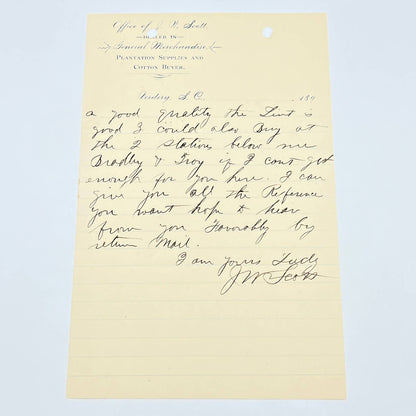 Office of J. W. Scott
DEALER IN
General Merchandise,
PLANTATION SUPPLIES AND
COTTON BUYER.
Verdery, S. C., 189
a good quality the Lint is
good I could also Buy at
the 2 Stations below me
Bradley & Troy if I cant get
enough for you here. I can
give you all the Reference
you want hope to hear
from you Favorably by
return Mail.
I am yours Truly
J W Scott